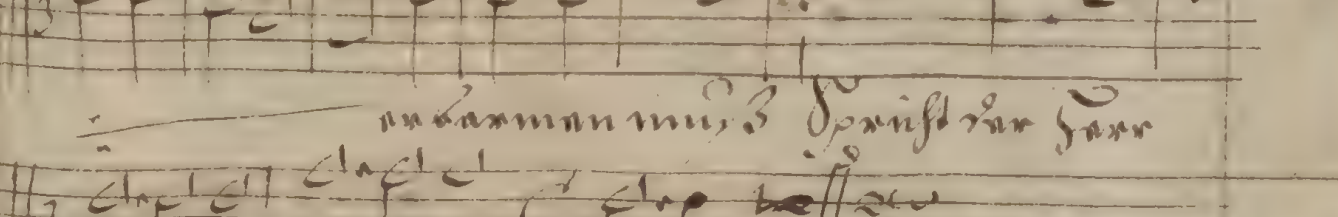 erbarmen muß Spricht der Herr